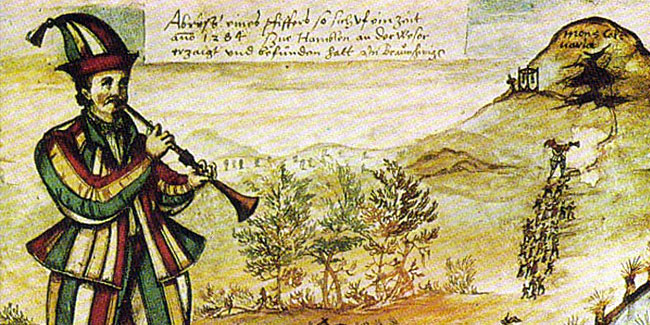 eines Pfiffers so sich uf ein Zeit
ano 1284 Zue Hamblen an der Weser
erzaigt und befunden hatt In
mons Cal
varia